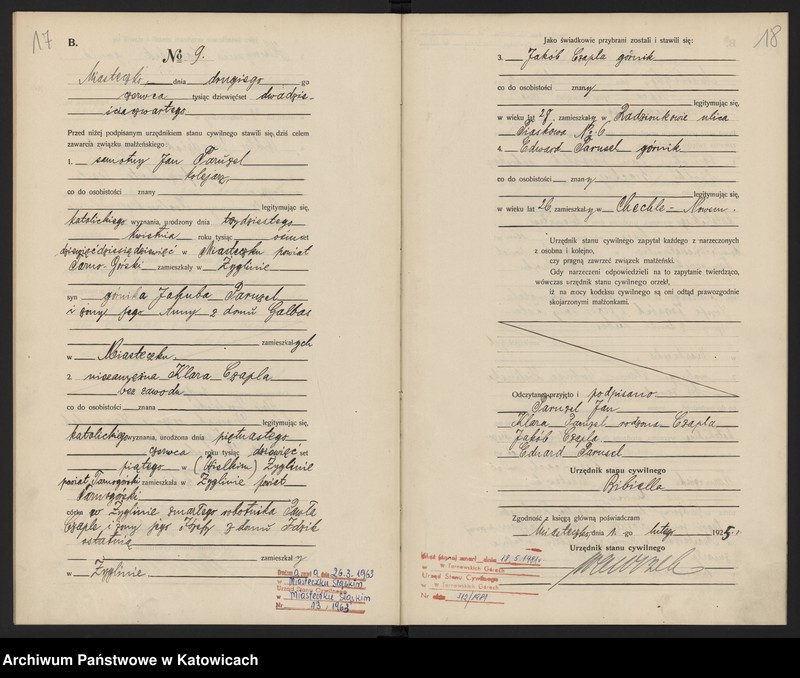 17
B.
No 9.
Miasteczko dnia drugiego go
czerwca tysiąc dziewięćset dwadzie-
ścia czwartego
Przed niżej podpisanym urzędnikiem stanu cywilnego stawili się, dziś celem
zawarcia związku małżeńskiego
1. samotny Jan Parusel
kolejarz,
co do osobistości znany
legitymując się,
katolickiego wyznania, urodzony dnia trzydziestego
kwietnia roku tysiąc ośmset
dziewięćdziesiądziewięć w Miasteczku powiat
Tarno-Górski zamieszkały w Żyglinie
syn górnika Jakuba Parusel
i żony jego Anny z domu Galbas
zamieszkałych
w Miasteczku.
2. niezamężna Klara Czapla
bez zawodu
co do osobistości znana
legitymując się,
katolickiego wyznania, urodzona dnia piętnastego
czerwca roku tysiąc dziewięćset
piątego w (Wielkim) Żyglinie
powiat Tarnogórski zamieszkała w Żyglinie powiat
Tarnogórski
córka w Żyglinie zmarłego robotnika
Czapla i żony jego Józefy z domu Idzik
ostatnia
zamieszkały
w Żyglinie
26.3.1963
w Miasteczku Śląskim
Urząd Stanu Cywilnego
w Miasteczku Śląskim
Nr 13.1963
18
Jako świadkowie przybrani zostali i stawili się:
3. Jakób Czapla górnik
co do osobistości znany
legitymując się,
w wieku lat 27, zamieszkały w Radzionkowie ulica
Piaskowa No 6
4. Edward Parusel górnik
co do osobistości znany
legitymując się,
w wieku lat 26, zamieszkały w Chechle-Nowem.
Urzędnik stanu cywilnego zapytał każdego z narzeczonych
z osobna i kolejno,
czy pragną zawrzeć związek małżeński.
Gdy narzeczeni odpowiedzieli na to zapytanie twierdząco,
wówczas urzędnik stanu cywilnego orzekł,
iż na mocy kodeksu cywilnego są oni odtąd prawozgodnie
skojarzonymi małżonkami.
Odczytano, przyjęto i podpisano
Parusel Jan
Klara Parusel rodzona Czapla
Jakób Czapla
Edward Parusel
Urzędnik stanu cywilnego
Bibiella
Zgodność z księgą główną poświadczam
Miasteczko, dnia 1. go lutego 1925 r.
Urzędnik stanu cywilnego
dnia 18.5.1981
w Tarnowskich Górach
Urząd Stanu Cywilnego
w Tarnowskich Górach
Nr
Archiwum Państwowe w Katowicach